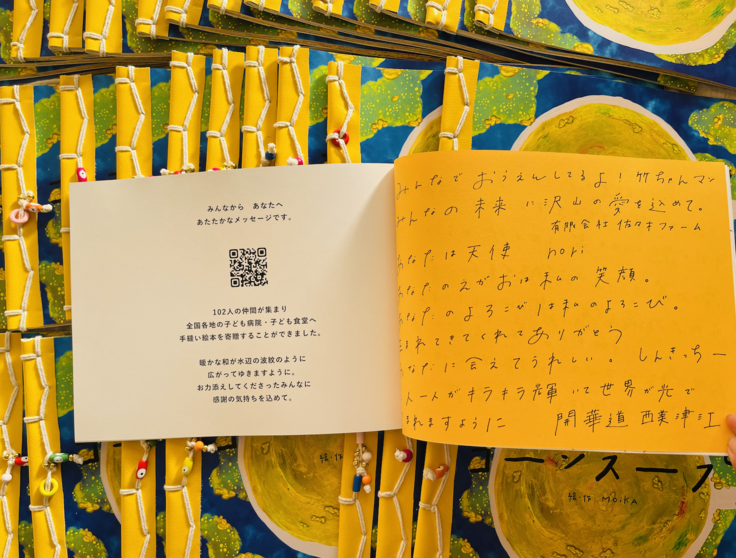 みんなから あなたへ
あたたかなメッセージです。
102人の仲間が集まり
全国各地の子ども病院・子ども食堂へ
手縫い絵本を寄贈することができました。
暖かな和が水辺の波紋のように
広がってゆきますように。
お力添えしてくださったみんなに
感謝の気持ちを込めて。
みんなでおうえんしてるよ！竹ちゃんマン
みんなの未来に沢山の愛を込めて。
有限会社 佐々木ファーム
あなたは天使 nori
あなたのえがおは私の笑顔。
あなたのよろこびは私のよろこび。
生まれてきてくれてありがとう
あなたに会えてうれしい。 しんきっちー
一人一人がキラキラ輝いて世界が光で
まれますように 開華道 西津江
ーンスープ
絵・作 MOIKA
絵・作